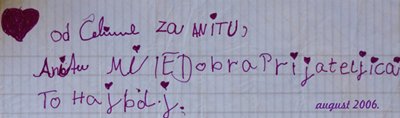 od Celine za ANITU,
Anitu MI JE DobraPrijateljica
To Haj bd.j.
august 2006.